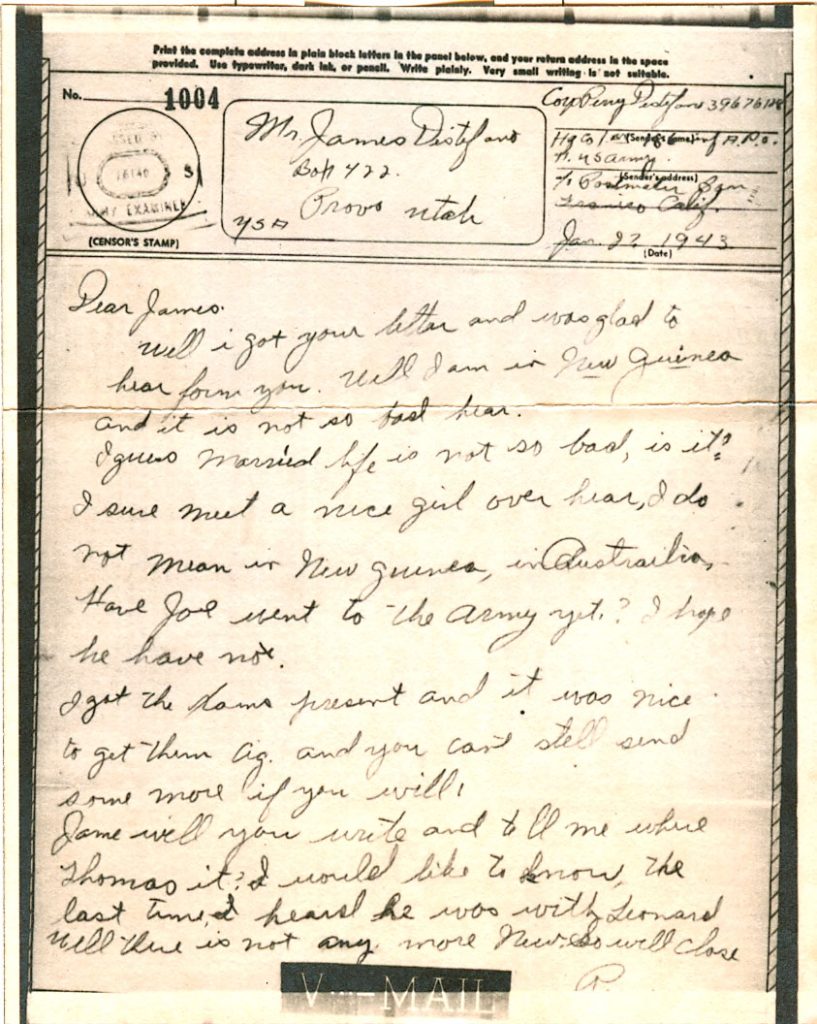 Print the complete address in plain block letters in the panel below, and your return address in the space
provided. Use typewriter, dark ink, or pencil. Write plainly. Very small writing is not suitable.
No. 1004
(CENSOR'S STAMP)
ARMY EXAMINER
Mr. James Distefano
Box 422
Provo Utah
USA
Corp Perry Distefano
(Sender's name) A.P.O.
US Army
(Sender's address)
Postmaster San
Francisco Calif.
Jan. 22 1943
(Date)
Dear James.
Well i got your letter and was glad to
hear form you. Well I am in New Guinea
and it is not so bad hear.
I guess Married life is not so bad, is it?
I sure meet a nice girl over hear, I do
not mean in New guinea, in Austrailia,
Have Joe went to the army yet.? I hope
he have not.
I got the present and it was nice
to get them Cig. and you can stell send
some more if you will!
Jame will you write and tell me where
Thomas it? I would like to know, the
last time I heard he was with Leonard
Well there is not any more New. So will close
P.
V---MAIL